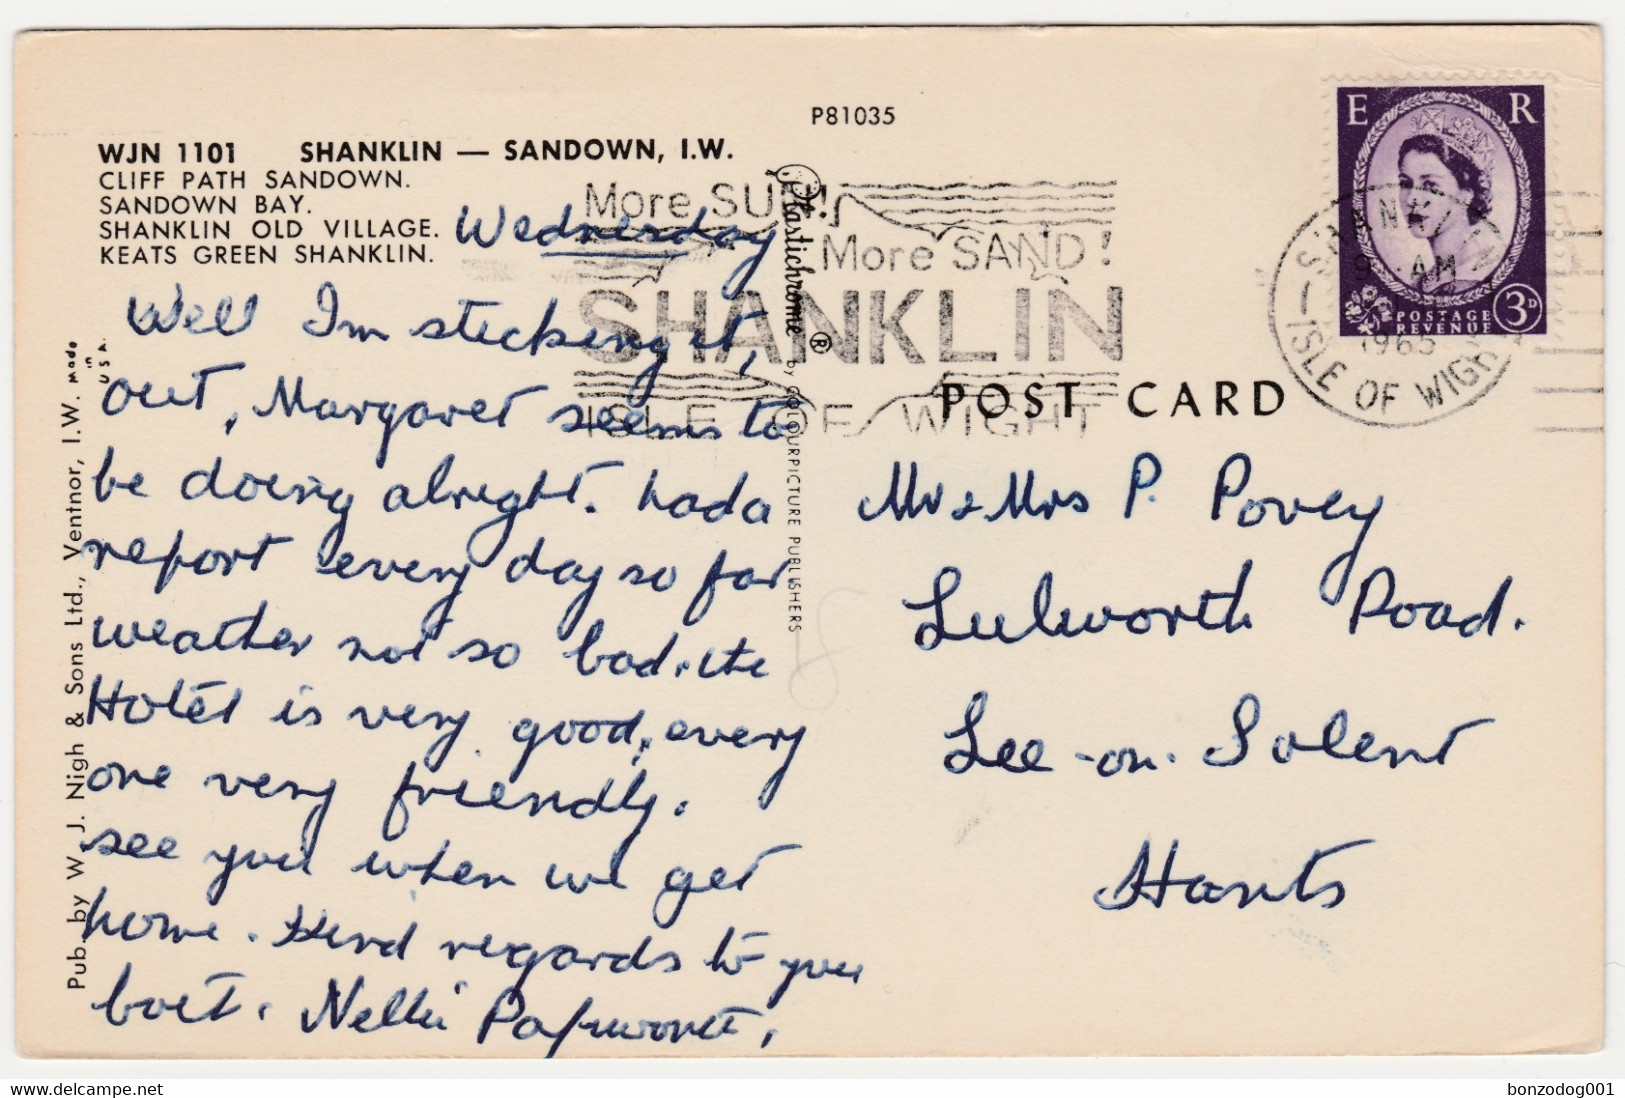 P81035
WJN 1101 SHANKLIN — SANDOWN, I.W.
CLIFF PATH SANDOWN.
SANDOWN BAY.
SHANKLIN OLD VILLAGE.
KEATS GREEN SHANKLIN.
Wednesday
Well Im sticking it,
out, Margaret seems to
be doing alright. had a
report every day so far
weather not so bad. the
Hotel is very good, every
one very friendly.
see you when we get
home. Kind regards to you
boet. Nellie Papworth.
Pub. by W. J. Nigh & Sons Ltd., Ventnor, I.W. Made in U.S.A.
Plastichrome ® by COLOURPICTURE PUBLISHERS
More SUN!
More SAND!
SHANKLIN
ISLE OF WIGHT
E R
POSTAGE
REVENUE
3D
SHANKLIN
9 AM
1965
ISLE OF WIGHT
POST CARD
Mr & Mrs P. Povey
Lulworth Road.
Lee-on-Solent
Hants
delcampe.net
bonzodog001